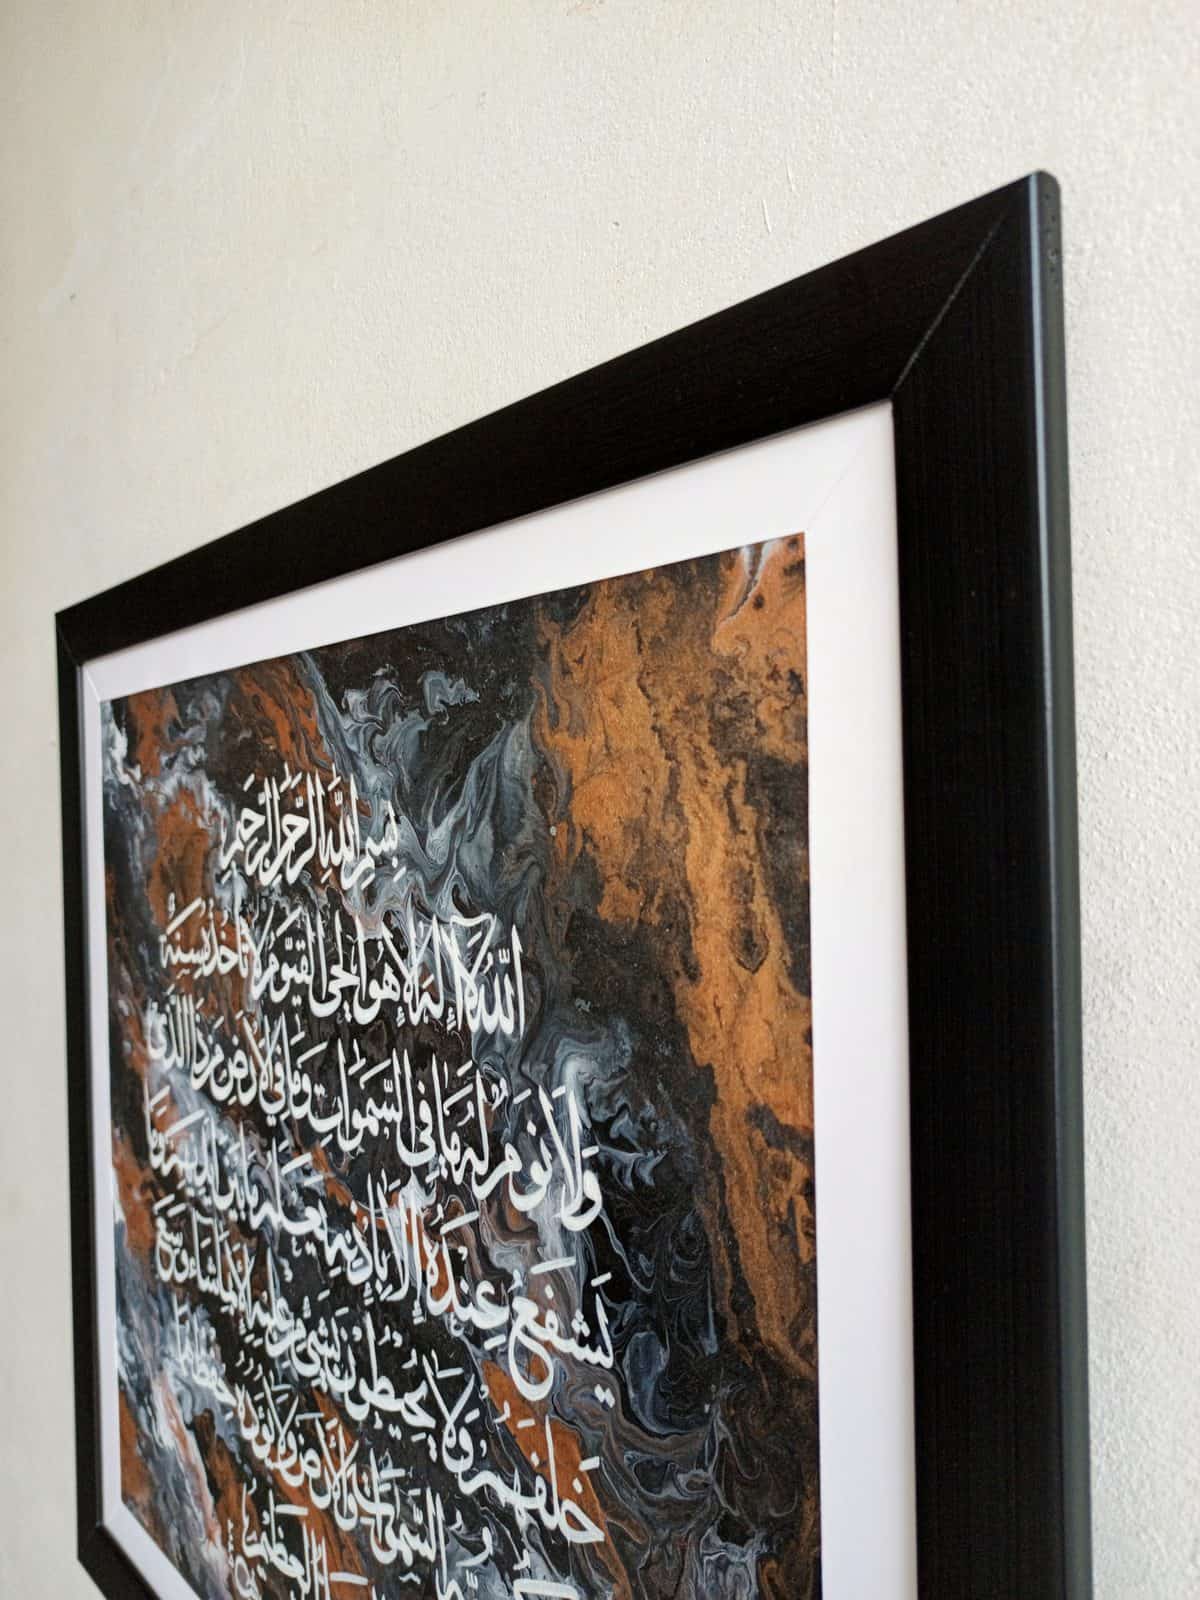 بِسْمِ اللَّهِ الرَّحْمَٰنِ الرَّحِيمِ
اللَّهُ لَا إِلَٰهَ إِلَّا هُوَ الْحَيُّ الْقَيُّومُ لَا تَأْخُذُهُ سِنَةٌ
وَلَا نَوْمٌ لَهُ مَا فِي السَّمَوَاتِ وَمَا فِي الْأَرْضِ مَنْ ذَا الَّذِي
يَشْفَعُ عِنْدَهُ إِلَّا بِإِذْنِهِ يَعْلَمُ مَا بَيْنَ أَيْدِيهِمْ وَمَا
خَلْفَهُمْ وَلَا يُحِيطُونَ بِشَيْءٍ مِنْ عِلْمِهِ إِلَّا بِمَا شَاءَ وَسِعَ
السَّمَوَاتِ وَالْأَرْضَ وَلَا يَئُودُهُ حِفْظُهُمَا
الْعَظِيمُ